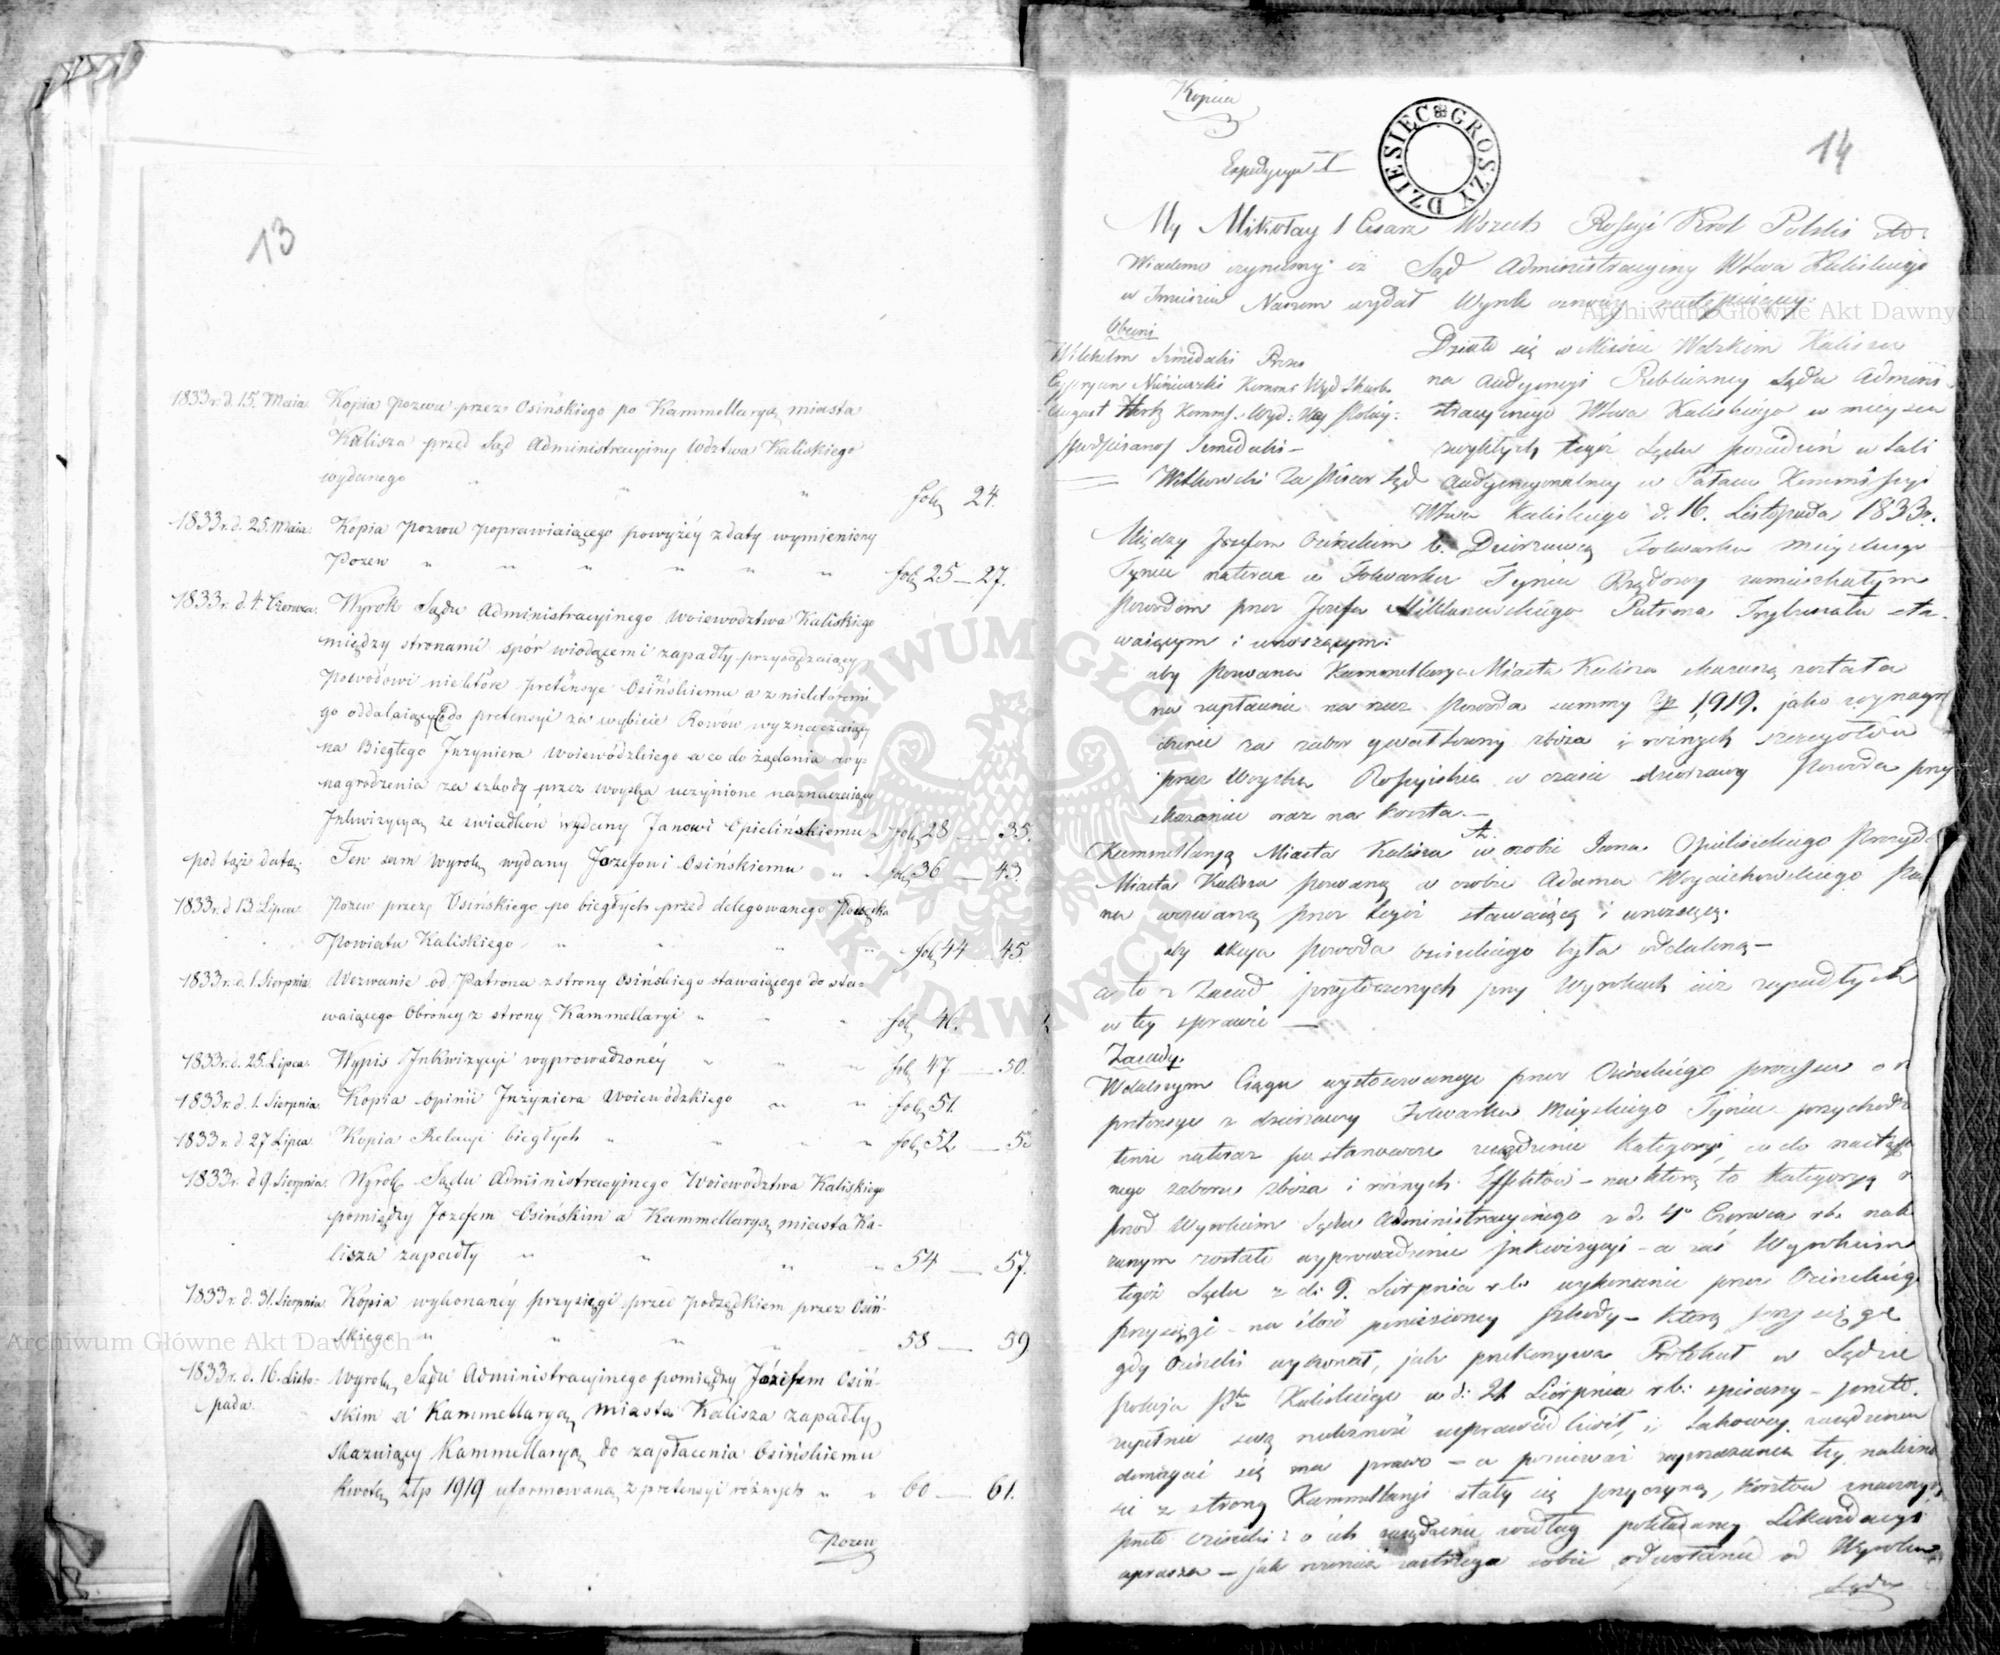 13
1833 r. d. 15. Maia. Kopia pozwu przez Osińskiego po Kammellaryą miasta
Kalisza przed Sąd Administracyiny Wdztwa Kaliskiego
wydanego " " " fol. 24.
1833 r. d. 25. Maia. Kopia pozwu poprawiaiącego powyżéy z daty wymieniony
Pozew " " " " " " fol. 25 — 27.
1833 r. d. 4. Czerwca. Wyrok Sądu Administracyinego Woiewodztwa Kaliskiego
między stronami spór wiodącemi zapadły przysądzaiący
Powodowi niektóre pretensye Osińskiemu a z niektóremi
go oddalaiący do pretensyi za wybicie Rowów wyznaczaiący
na Biegłego Inżyniera Woiewódzkiego a co do żądania wy-
nagrodzenia za szkody przez woyska uczynione naznaczaiący
Inkwizycyą ze świadków wydany Janowi Opielińskiemu " fol. 28 — 35.
pod tąż datą. Ten sam wyrok wydany Jozefowi Osinskiemu " " fol. 36 — 43.
1833 r. d 13. Lipca. Pozew przez Osińskiego po biegłych przed delegowanego Podsędka
Powiatu Kaliskiego " " " " fol. 44 — 45.
1833 r. d. 1. Sierpnia. Wezwanie od Patrona z strony Osińskiego stawaiącego do sta-
waiącego Obrońcy z strony Kammellaryi " " " fol. 46.
1833 r. d. 25. Lipca. Wypis Inkwizycyi wyprowadzonéy " " " fol. 47 — 50.
1833 r. d. 1. Sierpnia. Kopia opinii Inżyniera Woiewódzkiego " " fol. 51.
1833 r. d. 27 Lipca. Kopia Relacyi biegłych " " " " fol. 52 — 53
1833 r. d 9. Sierpnia. Wyrok Sądu Administracyinego Woiewództwa Kaliskiego
pomiędzy Jozefem Osińskim a Kammellaryą miasta Ka-
lisza zapadły " " " " 54 — 57.
1833 r. d. 31. Sierpnia. Kopia wykonanéy przysięgi przed podsędkiem przez Osiń-
skiego " " " " 58 — 59
1833 r. d. 16. Listo- Wyrok Sądu Administracyinego pomiędzy Józefem Osiń-
pada. skim a Kammellaryą miasta Kalisza zapadły
skazuiący Kammellaryą do zapłacenia Osińskiemu
kwotę złp 1919 uformowaną z pretensyi różnych " " 60 — 61.
Pozew
Kopiia
Expedycya I
DZIESIĘC GROSZY
14
My Mikołay I Cesarz Wszech Rossyi Krol Polski etc.
Wiadomo czynimy iż Sąd Administracyiny Wdztwa Kaliskiego
w Imieniu Naszem wydał Wyrok oczewisty następuiący:
Obecni
Wilhelm Prezes
Cypryan Komms. Wydz. Skarb.
August Komms. Wydz.
podpisano
Witkowski Za Pisarz Sąd
Działo się w Mieście Wdzkim Kaliszu
na Audyencyi Publiczney Sądu Admini-
stracyinego Wdztwa Kaliskiego w mieyscu
zwykłych tegoż Sądu posiedzeń w Sali
Audyencyonalney w Pałacu Kommissyi
Wdztwa Kaliskiego d. 16. Listopada 1833 r.
Między Jozefem Osinskim b. Dzierzawcą Folwarku mieyskiego
Tyniec natenczas w Folwarku Tyniec Rządowy zamieszkałym
Powodem przez Jozefa Patrona Trybunału sta-
waiącym i wnoszącym:
aby pozwana Kammellarya Miasta Kalisza skazaną została
na zapłacenie na rzecz Powoda summy złp 1,919. jako wynagro
dzenie za zabor gwałtowny zboza i róznych szczegołów
przez Woyska Rossyiskie w czasie dzierzawy Powoda przy
skazanie oraz na koszta. —
Kammellaryą Miasta Kalisza w osobie Jana Opielinskiego Prezyd.
Miasta Kalisza pozwaną w osobie Adama Woyciechowskiego Pa
na wezwaną przez tegoż stawaiącą i wnoszącą.
aby akcya Powoda Osinskiego była oddaloną —
a to z Zasad przytoczonych przy Wyrokach iuż zapadłych
w tey sprawie —
Zasady.
W dalszym Ciągu wystosowanego przez Osinskiego processu o
pretensye z dzierzawy Folwarku Mieyskiego Tyniec przychodzi
teraz natenczas postanowcze zasądzenie Kategoryi, co do
nego zaboru zboza i róznych Effektów — na którą to Kategoryą
przed Wyrokiem Sądu Administracyinego z d. 4o Czerwca rb.
zanym zostało wyprowadzenie inkwizycyi — a zaś Wyrokiem
tegoż Sądu z d. 9. Sierpnia r.b. wykonanie przez Osinskiego
przysięgi — na ilość poniesioney szkody — którą przysięgę
gdy Osinski wykonał, jak przekonywa Protokuł w Sądzie
Pokoju Ptu Kaliskiego w d. 21 Sierpnia rb. spisany — przeto
zupełnie swą należność usprawiedliwił, i takowey zasądzenia
domagać się ma prawo — a ponieważ zaprzeczenia tey należno
ści z strony Kammellaryi stały się przyczyną, kosztów znacznych
przeto Osinski o ich zasądzenie według pokładaney Likwidacyi
uprasza — jak również zastrzega sobie odwołanie od Wyroku
Sądu
Archiwum Główne Akt Dawnych
Archiwum Główne Akt Dawnych
ARCHIWUM GŁÓWNE AKT DAWNYCH